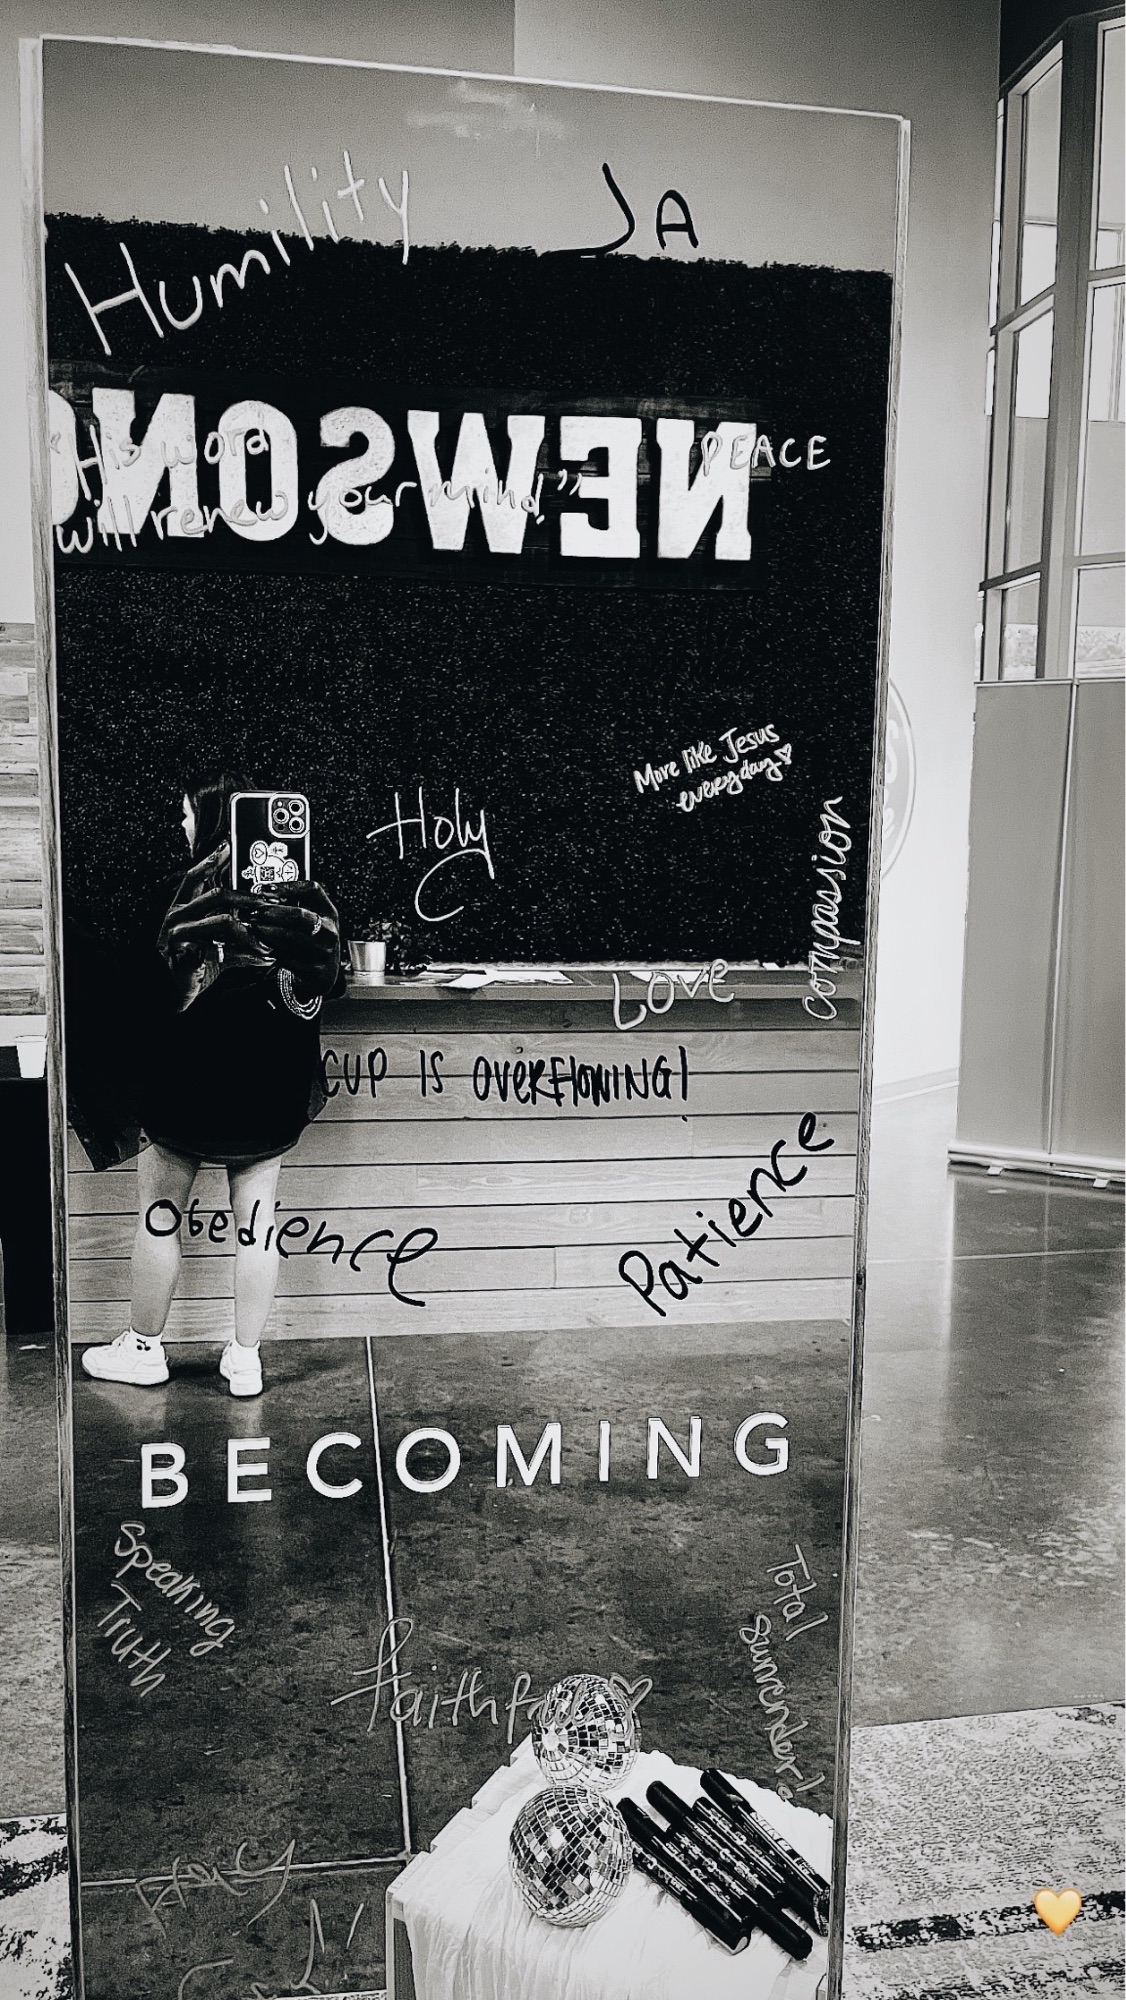 Humility
JA
NEWSON
"His word
will renew your mind!"
PEACE
More like Jesus
everyday
Holy
compassion
LOVE
CUP IS OVERFLOWING!
Obedience
Patience
BECOMING
Speaking
Truth
Total
Surrender!
faithful